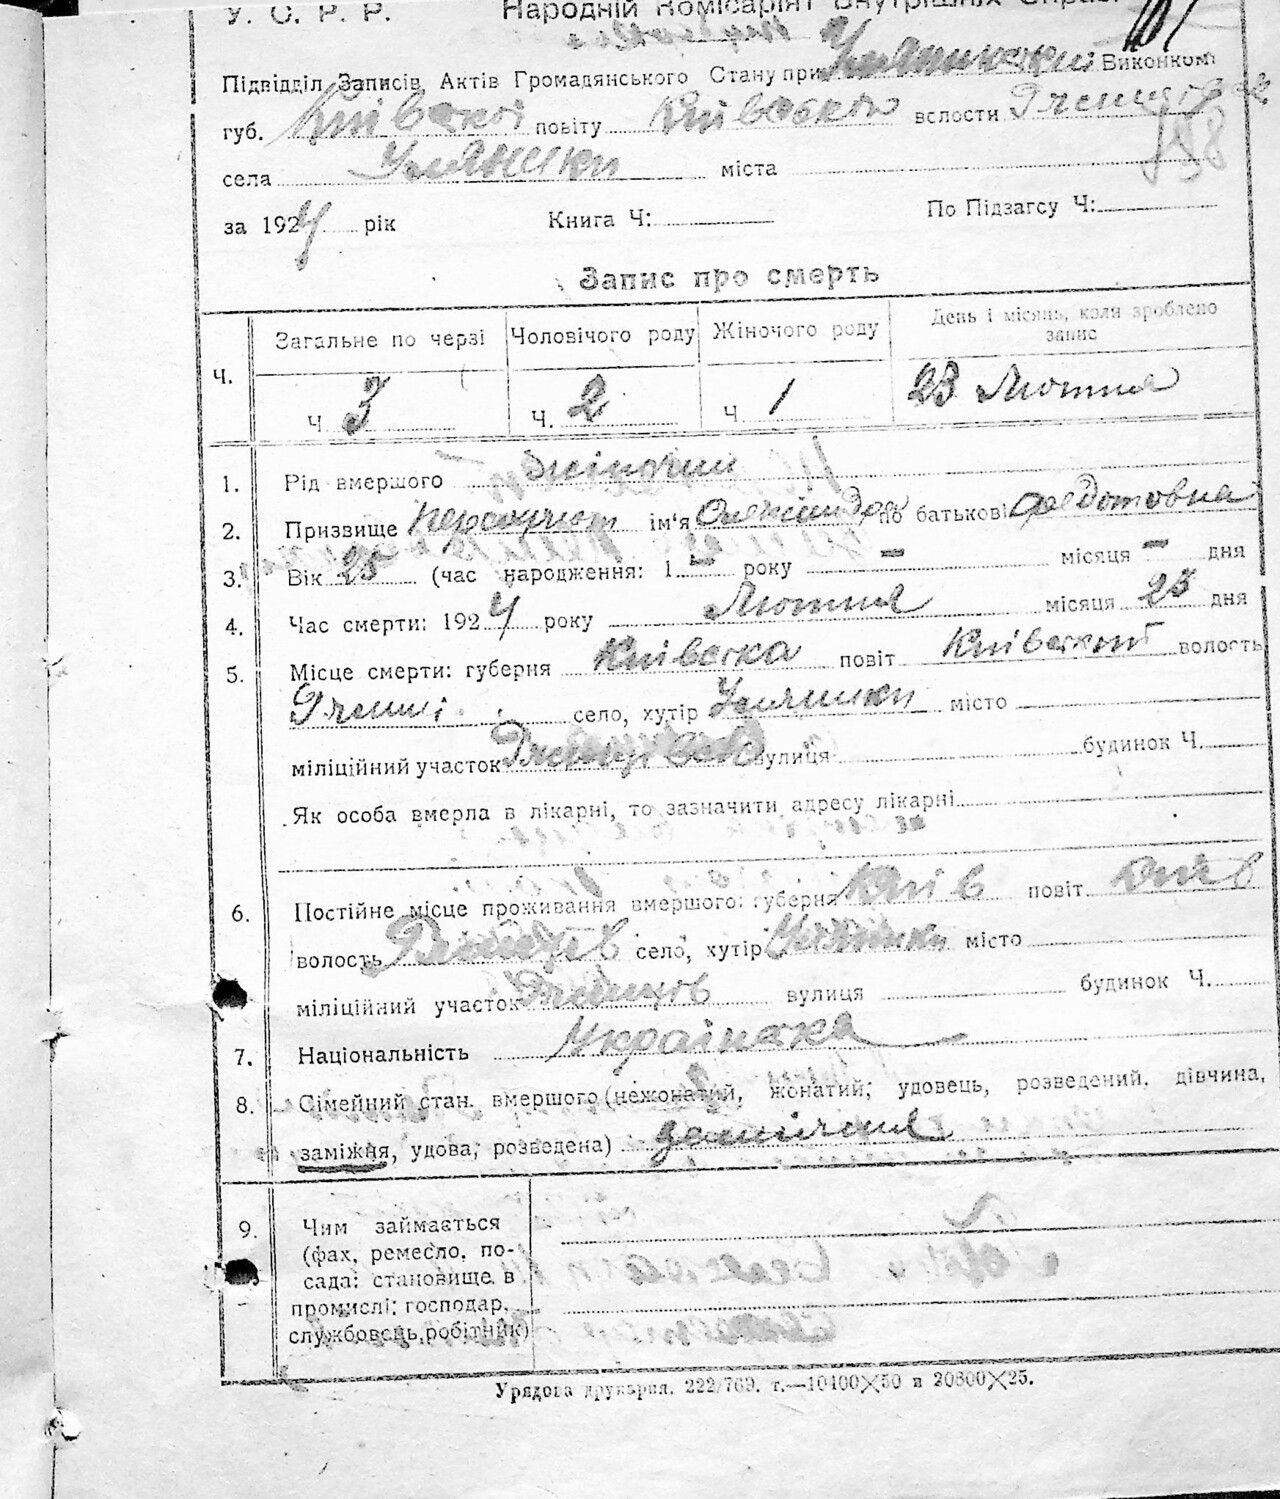 У. С. Р. Р. Народній Комісаріят Внутрішніх Справ.
Підвідділ Записів Актів Громадянського Стану при Виконкомі
губ. Київської повіту Київського волости
села Уляники міста
за 1924 рік Книга Ч: По Підзагсу Ч:
Запис про смерть
Ч. Загальне по черзі Чоловічого роду Жіночого роду День і місяць, коли зроблено запис
Ч 3 Ч. 2 Ч 1 23 Лютня
1. Рід вмершого жіночий
2. Призвище ім'я по батькові Федотовна
3. Вік 25 (час народження: 1 – року – місяця – дня
4. Час смерти: 1924 року Лютня місяця 23 дня
5. Місце смерти: губерня Київска повіт Київский волость
село, хутір Уляники місто
міліційний участок вулиця будинок Ч.
Як особа вмерла в лікарні, то зазначити адресу лікарні
6. Постійне місце проживання вмершого: губерня Київ повіт Київ
волость село, хутір Уляники місто
міліційний участок вулиця будинок Ч.
7. Національність Українака
8. Сімейний стан. вмершого (нежонатий, жонатий; удовець, розведений, дівчина,
заміжня, удова; розведена) замічня
9. Чим займається
(фах, ремесло, по-
сада: становище в
промислі; господар,
службовець, робітник)
Урядова друкарня. 222/769. т.—10400×50 и 20800×25.